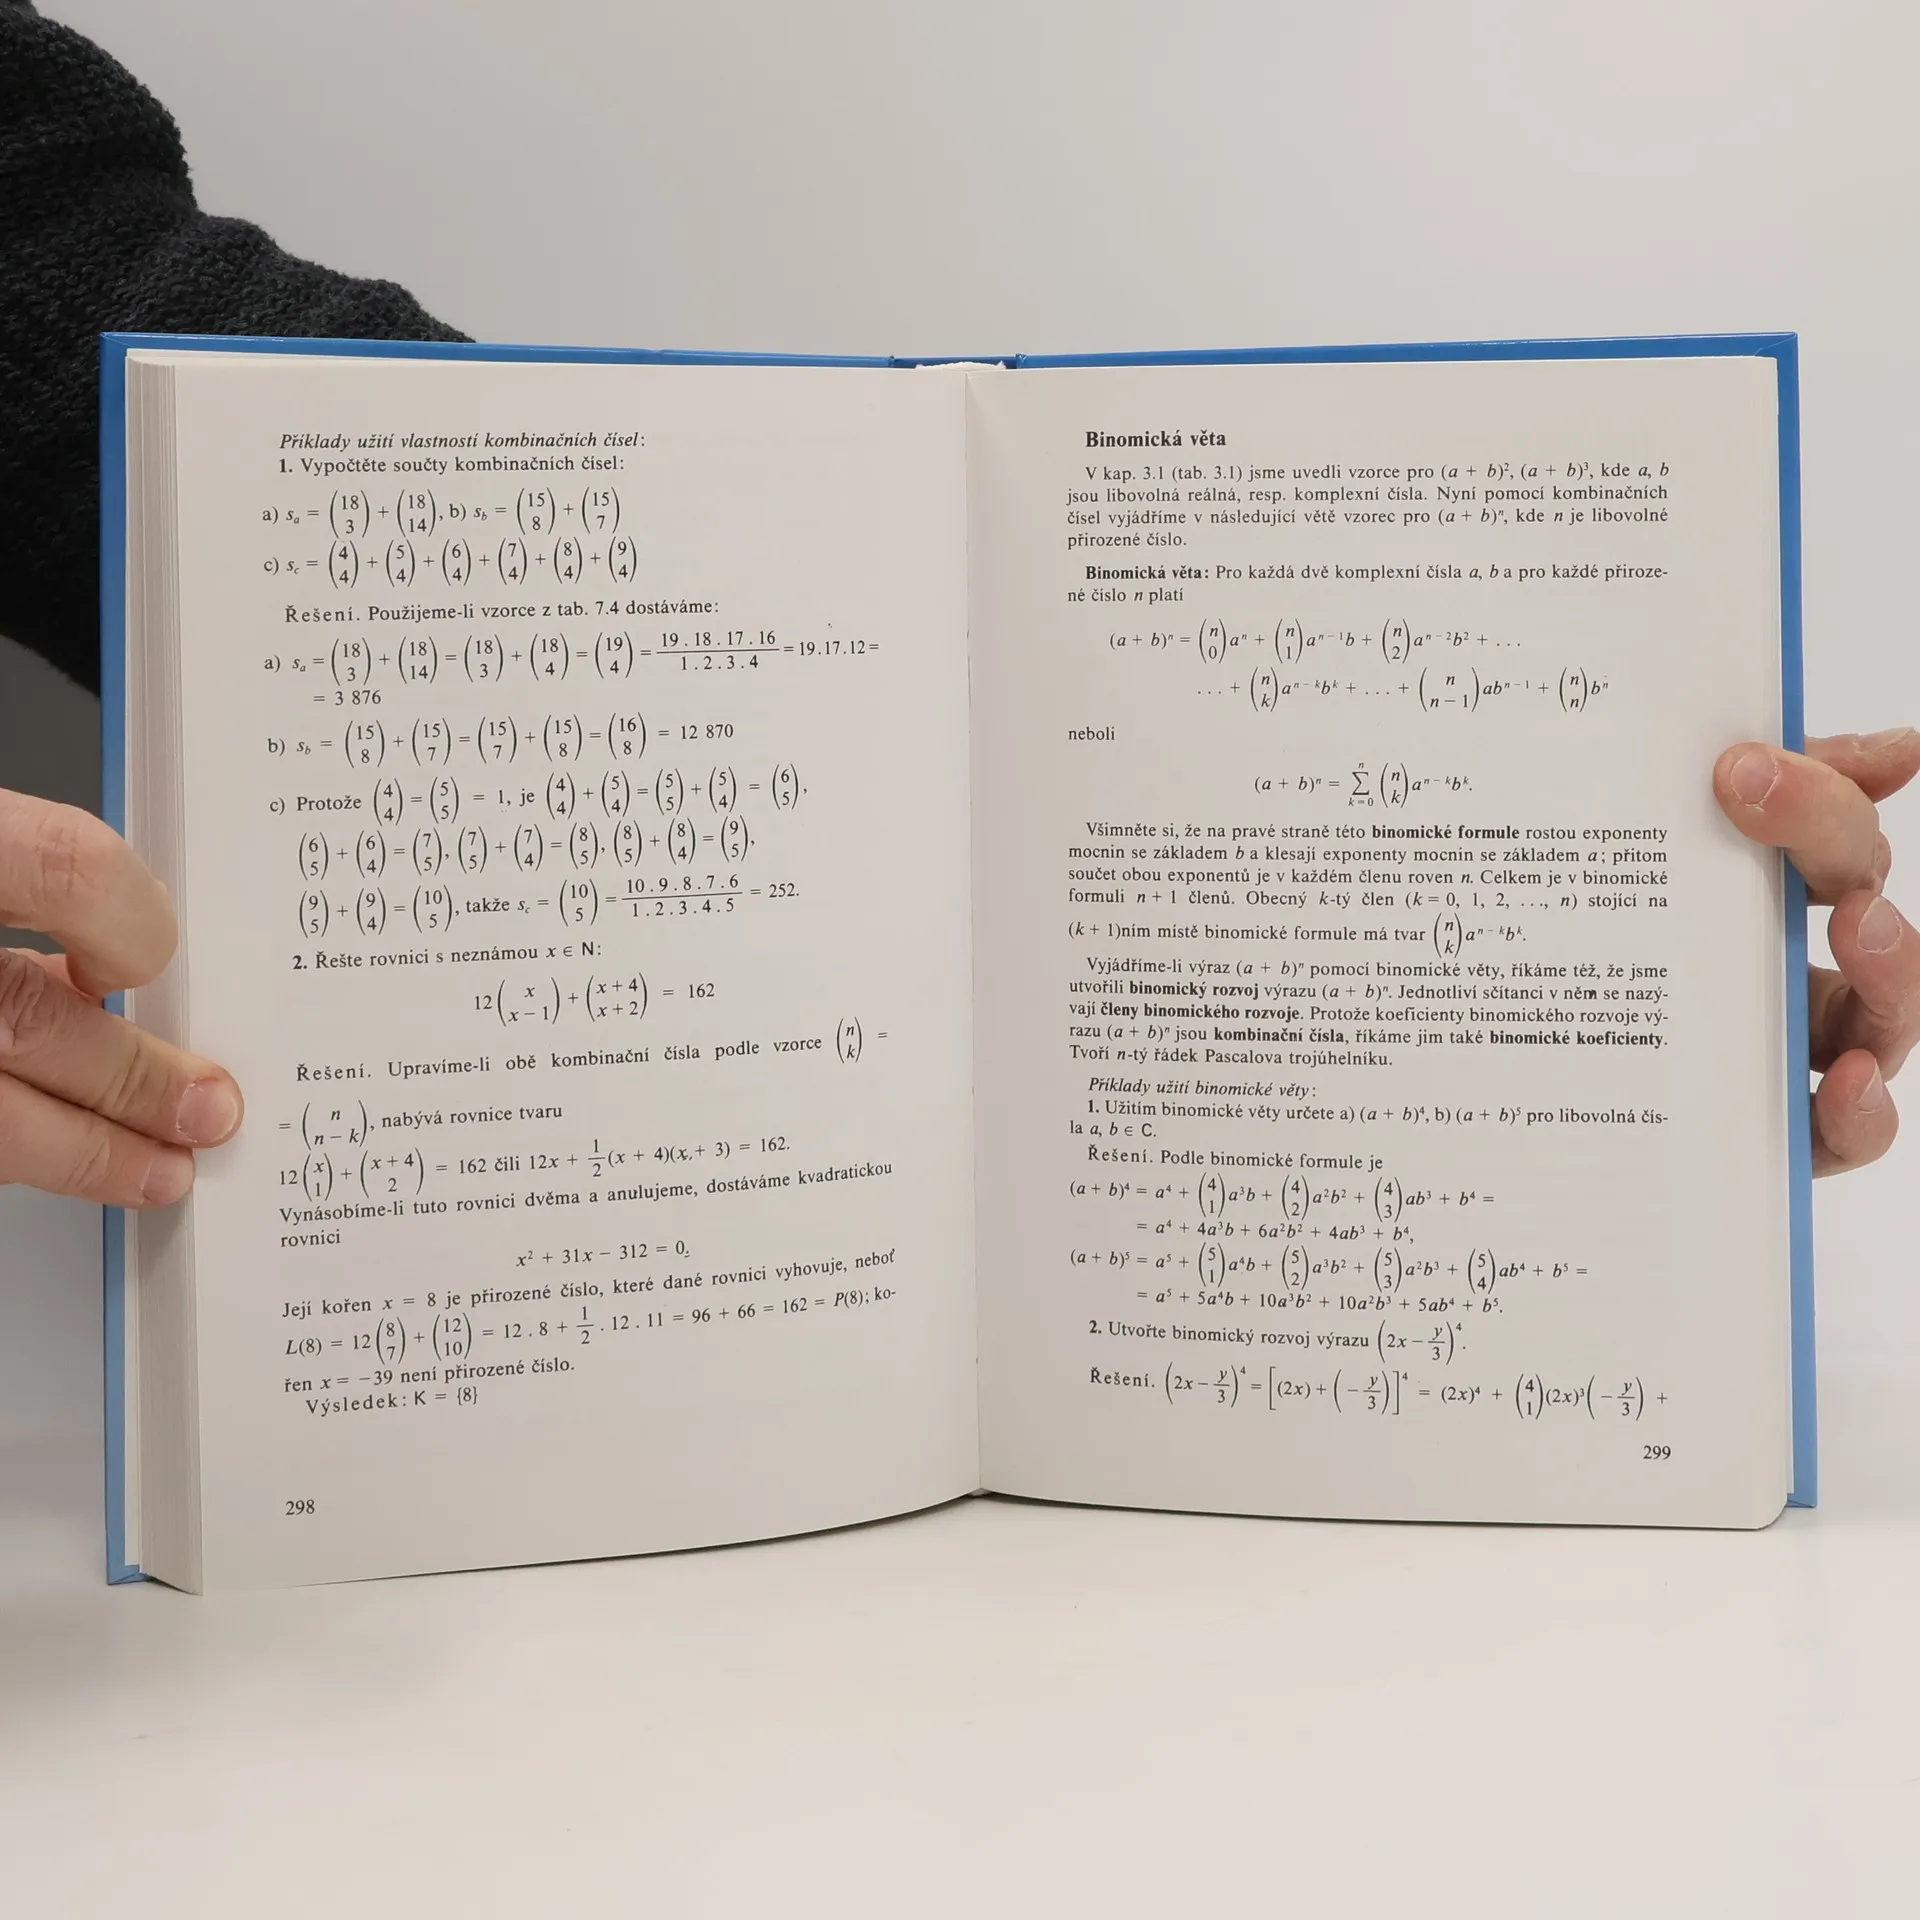 Příklady užití vlastností kombinačních čísel:
1. Vypočtěte součty kombinačních čísel:
a) sₐ = (18 3) + (18 14), b) s_b = (15 8) + (15 7)
c) s_c = (4 4) + (5 4) + (6 4) + (7 4) + (8 4) + (9 4)
Řešení. Použijeme-li vzorce z tab. 7.4 dostáváme:
a) sₐ = (18 3) + (18 14) = (18 3) + (18 4) = (19 4) = 19 . 18 . 17 . 16 / 1 . 2 . 3 . 4 = 19 . 17 . 12 =
= 3 876
b) s_b = (15 8) + (15 7) = (15 7) + (15 8) = (16 8) = 12 870
c) Protože (4 4) = (5 5) = 1, je (4 4) + (5 4) = (5 5) + (5 4) = (6 5),
(6 5) + (6 4) = (7 5), (7 5) + (7 4) = (8 5), (8 5) + (8 4) = (9 5),
(9 5) + (9 4) = (10 5), takže s_c = (10 5) = 10 . 9 . 8 . 7 . 6 / 1 . 2 . 3 . 4 . 5 = 252.
2. Řešte rovnici s neznámou x ∈ N:
12 (x x − 1) + (x + 4 x + 2) = 162
Řešení. Upravíme-li obě kombinační čísla podle vzorce (n k) =
= (n n − k), nabývá rovnice tvaru
12 (x 1) + (x + 4 2) = 162 čili 12x + 1/2 (x + 4)(x + 3) = 162.
Vynásobíme-li tuto rovnici dvěma a anulujeme, dostáváme kvadratickou
rovnici
x² + 31x − 312 = 0.
Její kořen x = 8 je přirozené číslo, které dané rovnici vyhovuje, neboť
L(8) = 12 (8 7) + (12 10) = 12 . 8 + 1/2 . 12 . 11 = 96 + 66 = 162 = P(8); ko-
řen x = −39 není přirozené číslo.
Výsledek: K = {8}
298
Binomická věta
V kap. 3.1 (tab. 3.1) jsme uvedli vzorce pro (a + b)², (a + b)³, kde a, b
jsou libovolná reálná, resp. komplexní čísla. Nyní pomocí kombinačních
čísel vyjádříme v následující větě vzorec pro (a + b)ⁿ, kde n je libovolné
přirozené číslo.
Binomická věta: Pro každá dvě komplexní čísla a, b a pro každé přiroze-
né číslo n platí
(a + b)ⁿ = (n 0) aⁿ + (n 1) aⁿ⁻¹b + (n 2) aⁿ⁻²b² + ...
... + (n k) aⁿ⁻ᵏbᵏ + ... + (n n − 1) abⁿ⁻¹ + (n n) bⁿ
neboli
(a + b)ⁿ = Σ n k=0 (n k) aⁿ⁻ᵏbᵏ.
Všimněte si, že na pravé straně této binomické formule rostou exponenty
mocnin se základem b a klesají exponenty mocnin se základem a; přitom
součet obou exponentů je v každém členu roven n. Celkem je v binomické
formuli n + 1 členů. Obecný k-tý člen (k = 0, 1, 2, ..., n) stojící na
(k + 1)ním místě binomické formule má tvar (n k) aⁿ⁻ᵏbᵏ.
Vyjádříme-li výraz (a + b)ⁿ pomocí binomické věty, říkáme též, že jsme
utvořili binomický rozvoj výrazu (a + b)ⁿ. Jednotliví sčítanci v něm se nazý-
vají členy binomického rozvoje. Protože koeficienty binomického rozvoje vý-
razu (a + b)ⁿ jsou kombinační čísla, říkáme jim také binomické koeficienty.
Tvoří n-tý řádek Pascalova trojúhelníku.
Příklady užití binomické věty:
1. Užitím binomické věty určete a) (a + b)⁴, b) (a + b)⁵ pro libovolná čís-
la a, b ∈ C.
Řešení. Podle binomické formule je
(a + b)⁴ = a⁴ + (4 1) a³b + (4 2) a²b² + (4 3) ab³ + b⁴ =
= a⁴ + 4a³b + 6a²b² + 4ab³ + b⁴,
(a + b)⁵ = a⁵ + (5 1) a⁴b + (5 2) a³b² + (5 3) a²b³ + (5 4) ab⁴ + b⁵ =
= a⁵ + 5a⁴b + 10a³b² + 10a²b³ + 5ab⁴ + b⁵.
2. Utvořte binomický rozvoj výrazu (2x − y/3)⁴.
Řešení. (2x − y/3)⁴ = [(2x) + (− y/3)]⁴ = (2x)⁴ + (4 1)(2x)³(− y/3) +
299